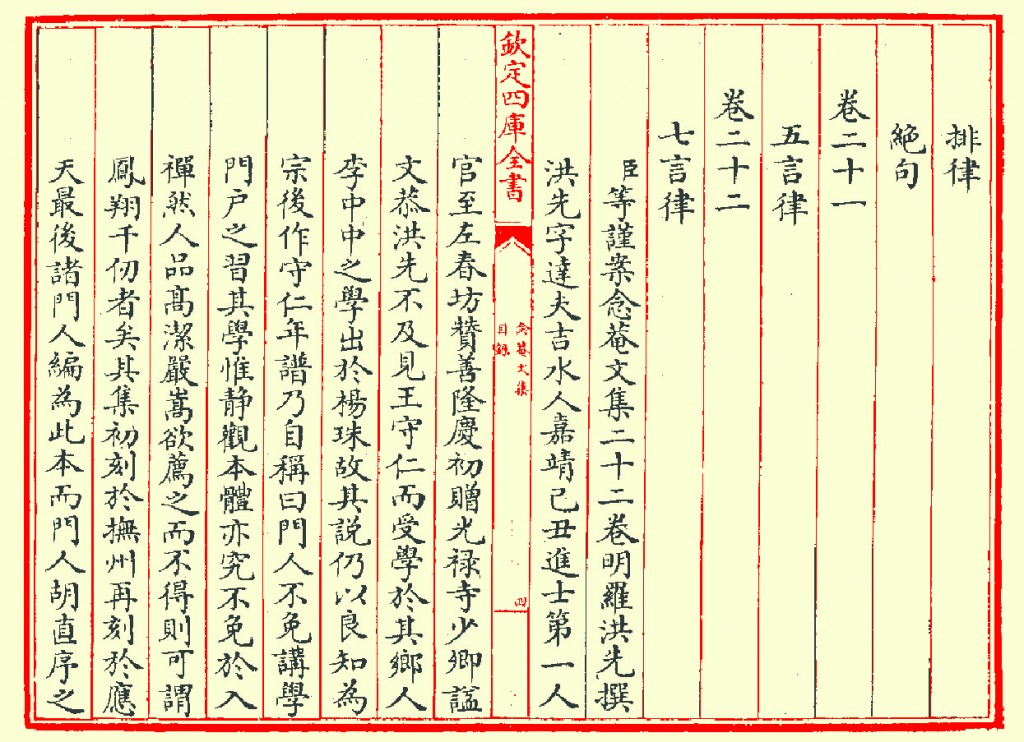 排律
絶句
卷二十一
五言律
卷二十二
七言律
臣等謹案念菴文集二十二卷明羅洪先撰
洪先字達夫吉水人嘉靖己丑進士第一人
欽定四庫全書
念菴文集
目録
四
官至左春坊贊善隆慶初贈光禄寺少卿諡
文恭洪先不及見王守仁而受學於其鄉人
李中中之學出於楊珠故其説仍以良知為
宗後作守仁年譜乃自稱曰門人不免講學
門户之習其學惟静觀本體亦究不免於入
禪然人品髙潔嚴嵩欲薦之而不得則可謂
鳳翔千仞者矣其集初刻於撫州再刻於應
天最後諸門人編為此本而門人胡直序之